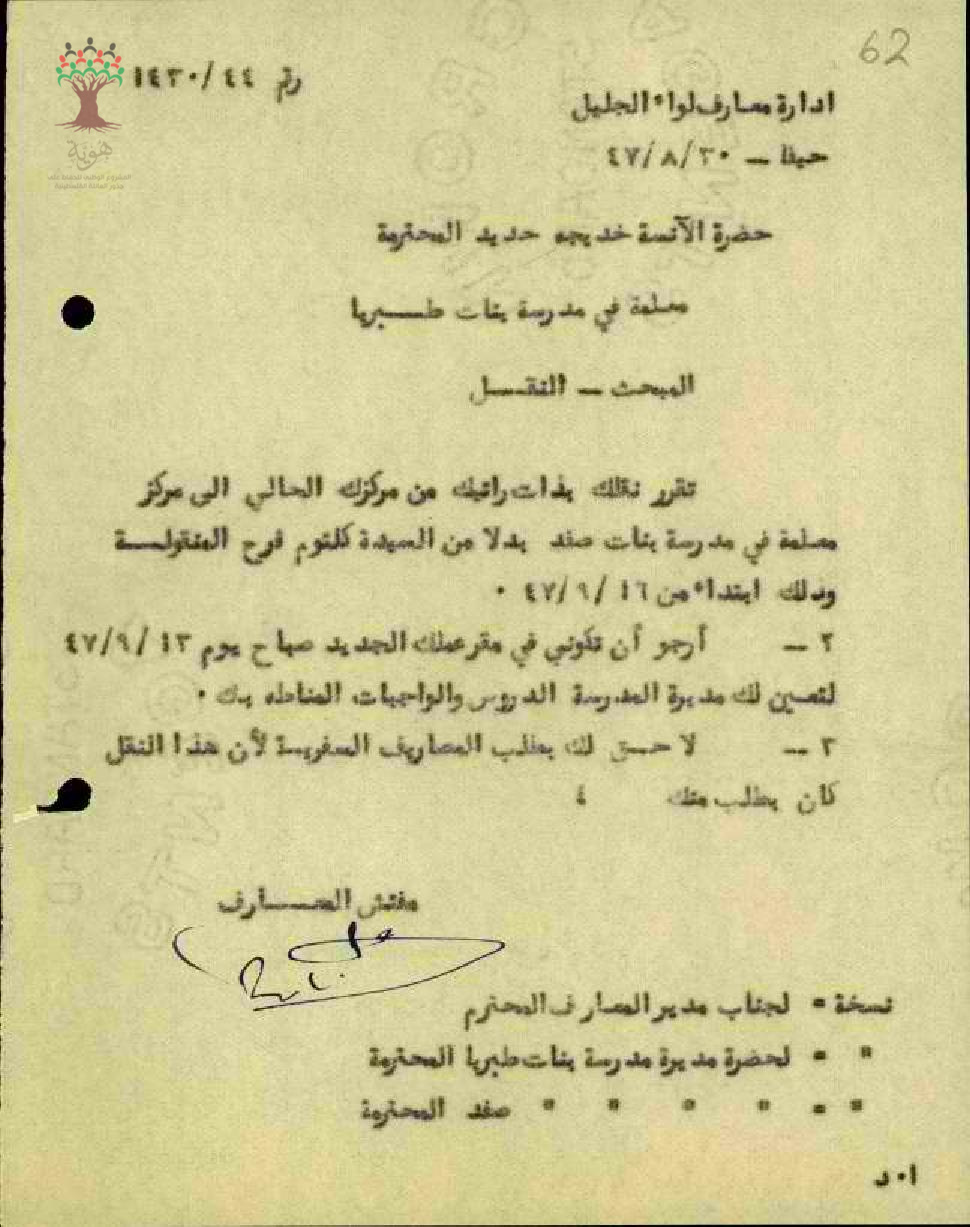 62
رقم ١٤٣٠/٤٤
ادارة معارف لواء الجليل
حيفا — ٤٧/٨/٣٠
حضرة الآنسة خديجه حديد المحترمة
معلمة في مدرسة بنات طبريا
المبحث — النقل
تقرر نقلك بذات راتبك من مركزك الحالي الى مركز
معلمة في مدرسة بنات صفد بدلا من السيدة كلثوم فرح المنقولة
وذلك ابتداء من ٤٧/٩/١٦ ٠
٢ — أرجو أن تكوني في مقر عملك الجديد صباح يوم ٤٧/٩/١٣
لتعين لك مديرة المدرسة الدروس والواجبات المناطه بك ٠
٣ — لا حق لك بطلب المصاريف السفرية لأن هذا النقل
كان بطلب منك ٤
مفتش المعارف
نسخة = لجناب مدير المعارف المحترم
" = لحضرة مديرة مدرسة بنات طبريا المحترمة
" = " " " " صفد المحترمة
ا٠د
هوية